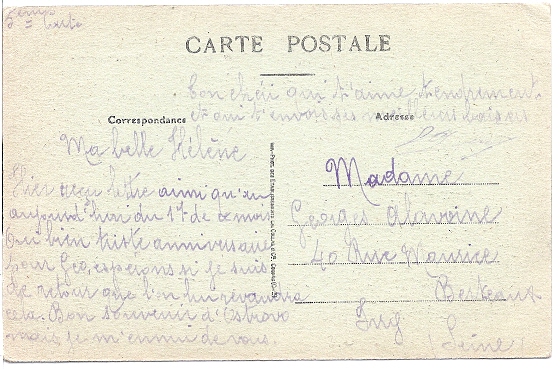 5ème Carte
CARTE POSTALE
Ton chéri qui t'aime tendrement
et qui t'envoi ses meilleurs baisers
Correspondance
Adresse
Ma belle Hélène
Hier reçu lettre ainsi qu'un
aujourd'hui du 17 de ce mois
bien triste anniversaire
pour Géo, espérons si je suis
de retour que l'on lui revaudra
cela. Bon souvenir d'Ostrovo
mais je m'ennui de vous.
Madame
Georges Alavoine
40 Rue Maurice
Berteaux
(Seine)